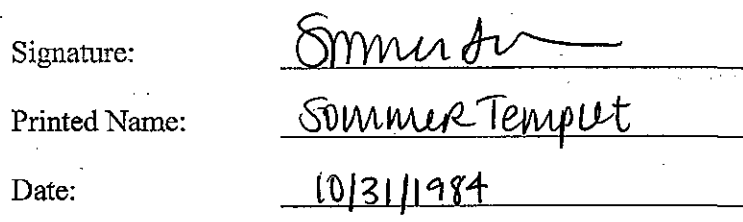 Signature: Sommer
Printed Name: Sommer Templet
Date: 10/31/1984